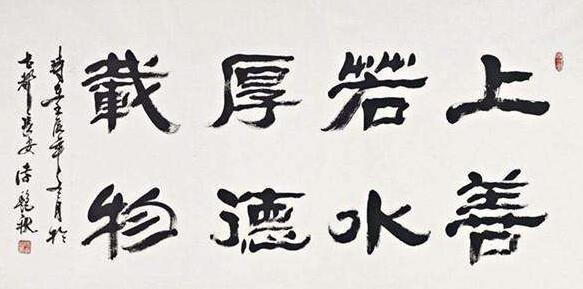 上善
若水
厚德
載物
壬辰年 月於
古都長安